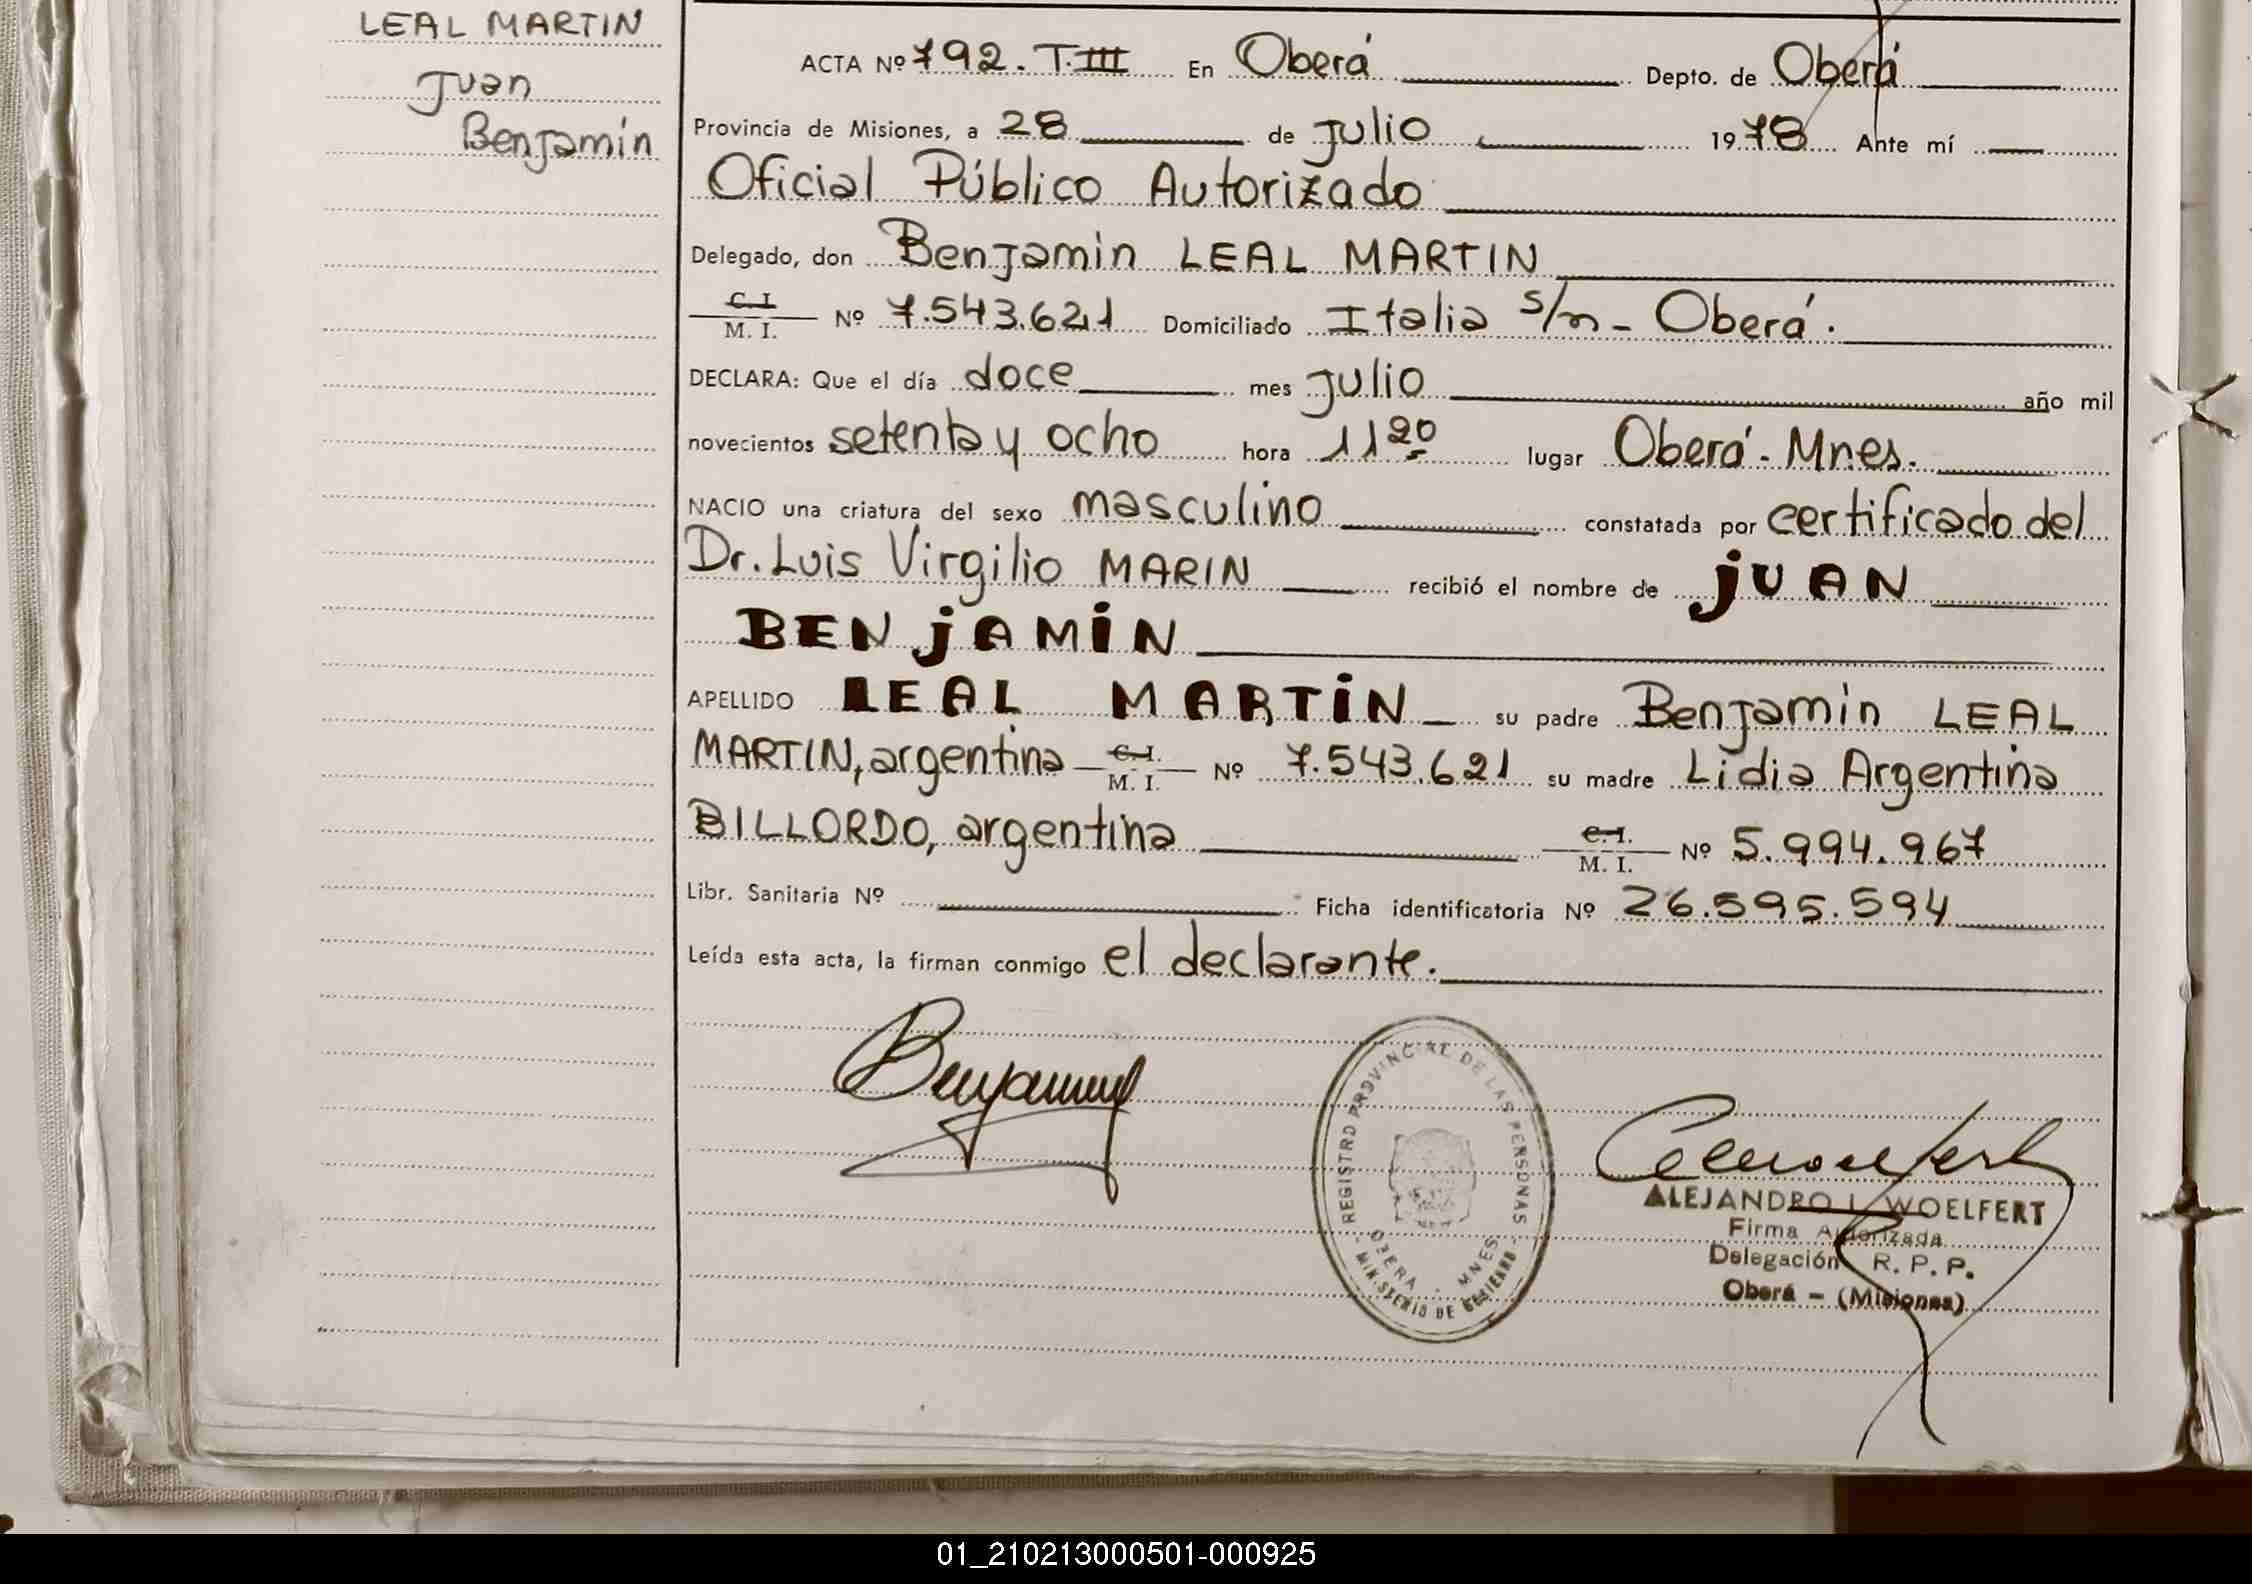 LEAL MARTIN
Juan
Benjamín
ACTA Nº 792. T. III En Oberá Depto. de Oberá
Provincia de Misiones, a 28 de julio 1978 Ante mí
Oficial Público Autorizado
Delegado, don Benjamin LEAL MARTIN
C. I. M. I. Nº 7.543.621 Domiciliado Italia s/n - Oberá.
DECLARA: Que el día doce mes julio año mil
novecientos setenta y ocho hora 11 20 lugar Oberá - Mnes.
NACIO una criatura del sexo masculino constatada por certificado del
Dr. Luis Virgilio MARIN recibió el nombre de JUAN
BENJAMIN
APELLIDO LEAL MARTIN su padre Benjamin LEAL
MARTIN, argentina C. I. M. I. Nº 7.543.621 su madre Lidia Argentina
BILLORDO, argentina C. I. M. I. Nº 5.994.967
Libr. Sanitaria Nº Ficha identificatoria Nº 26.595.594
Leída esta acta, la firman conmigo el declarante.
REGISTRO PROVINCIAL DE LAS PERSONAS
OBERA - MNES
MINISTERIO DE GOBIERNO
ALEJANDRO L. WOELFERT
Firma Autorizada
Delegación R. P. P.
Oberá - (Misiones)
01_210213000501-000925